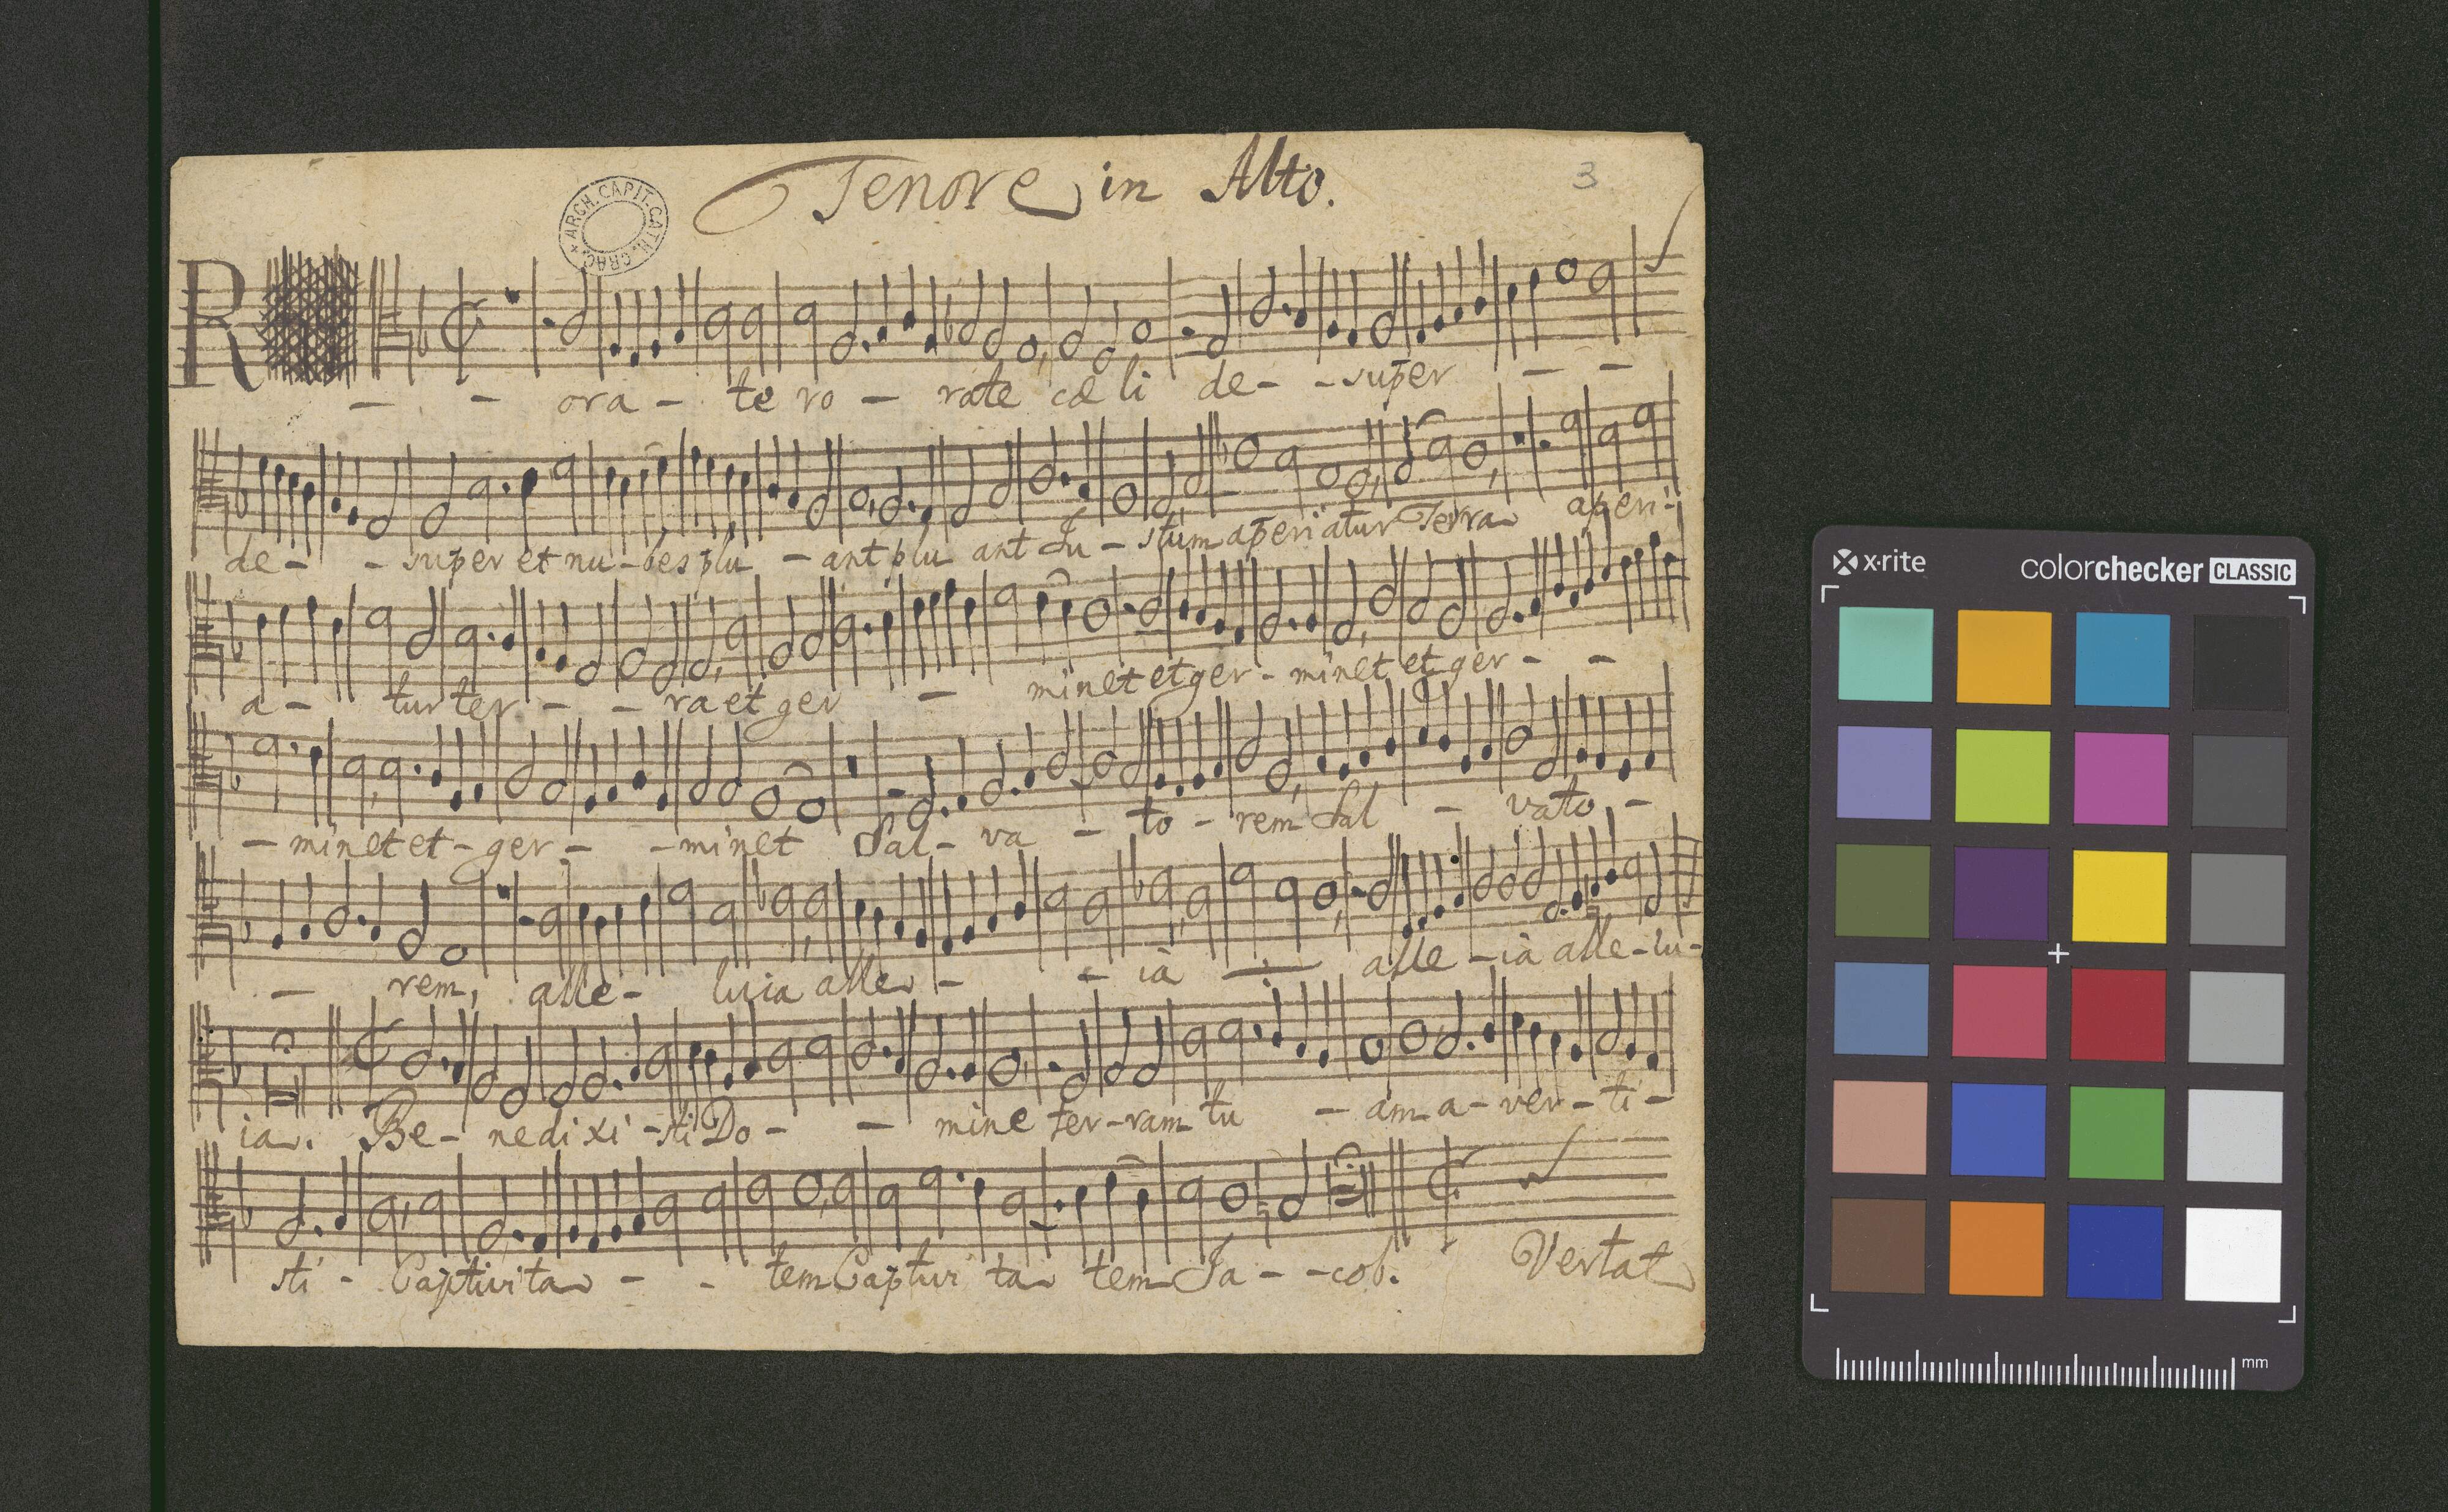 Tenore in Alto.
3
ARCH. CAPIT. CATH. CRAC.
R - - ora - te ro - rate cæli de - - super - -
de - - super et nu - bes plu - ant plu ant Ju - stum aperiatur Terra aperi -
a - tur ter - - ra et ger - minet et ger - minet et ger - -
- minet et - ger - - minet Sal - va - to - rem Sal - vato -
- rem, alle - luia alle - - ià alle - ià alle - lu -
ia. Be - nedixi - sti Do - - mine ter - ram tu - am a - ver - ti -
sti - Captivita - - tem Captivi ta tem Ja - - cob. Vertat
x·rite
colorchecker CLASSIC
mm